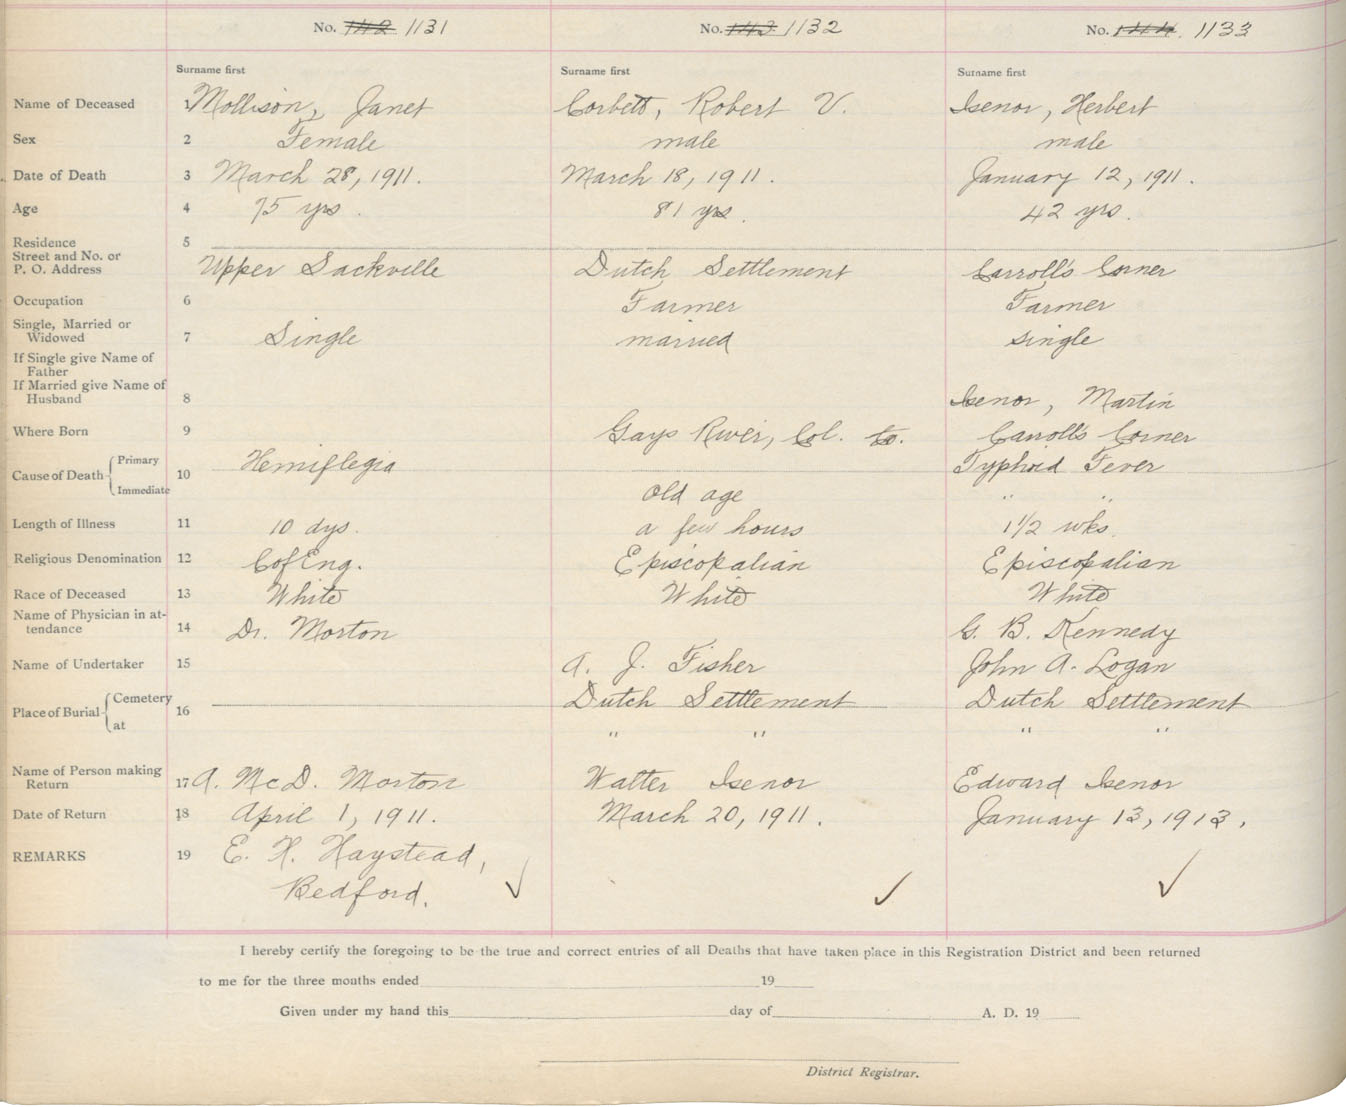 No. 142 1131 No. 143 1132 No. 144. 1133
Surname first Surname first Surname first
Name of Deceased 1 Mollison, Janet Corbett, Robert V. Isenor, Herbert
Sex 2 Female male male
Date of Death 3 March 28, 1911. March 18, 1911. January 12, 1911.
Age 4 75 yrs. 81 yrs. 42 yrs.
Residence 5
Street and No. or
P. O. Address Upper Sackville Dutch Settlement Carroll's Corner
Occupation 6 Farmer Farmer
Single, Married or
Widowed 7 Single married single
If Single give Name of
Father
If Married give Name of
Husband 8 Isenor, Martin
Where Born 9 Gays River, Col. Co. Carroll's Corner
Cause of Death Primary 10 Hemiflegia Typhoid Fever
Immediate Old age " "
Length of Illness 11 10 dys. a few hours 1 1/2 wks.
Religious Denomination 12 CofEng. Episcopalian Episcopalian
Race of Deceased 13 White White White
Name of Physician in at-
tendance 14 Dr. Morton G. B. Kennedy
Name of Undertaker 15 A. J. Fisher John A. Logan
Place of Burial Cemetery 16 Dutch Settlement Dutch Settlement
at " " " "
Name of Person making
Return 17 A. McD. Morton Walter Isenor Edward Isenor
Date of Return 18 April 1, 1911. March 20, 1911. January 13, 1913.
REMARKS 19 E. H. Haystead,
Bedford.
I hereby certify the foregoing to be the true and correct entries of all Deaths that have taken place in this Registration District and been returned
to me for the three months ended 19
Given under my hand this day of A. D. 19
District Registrar.